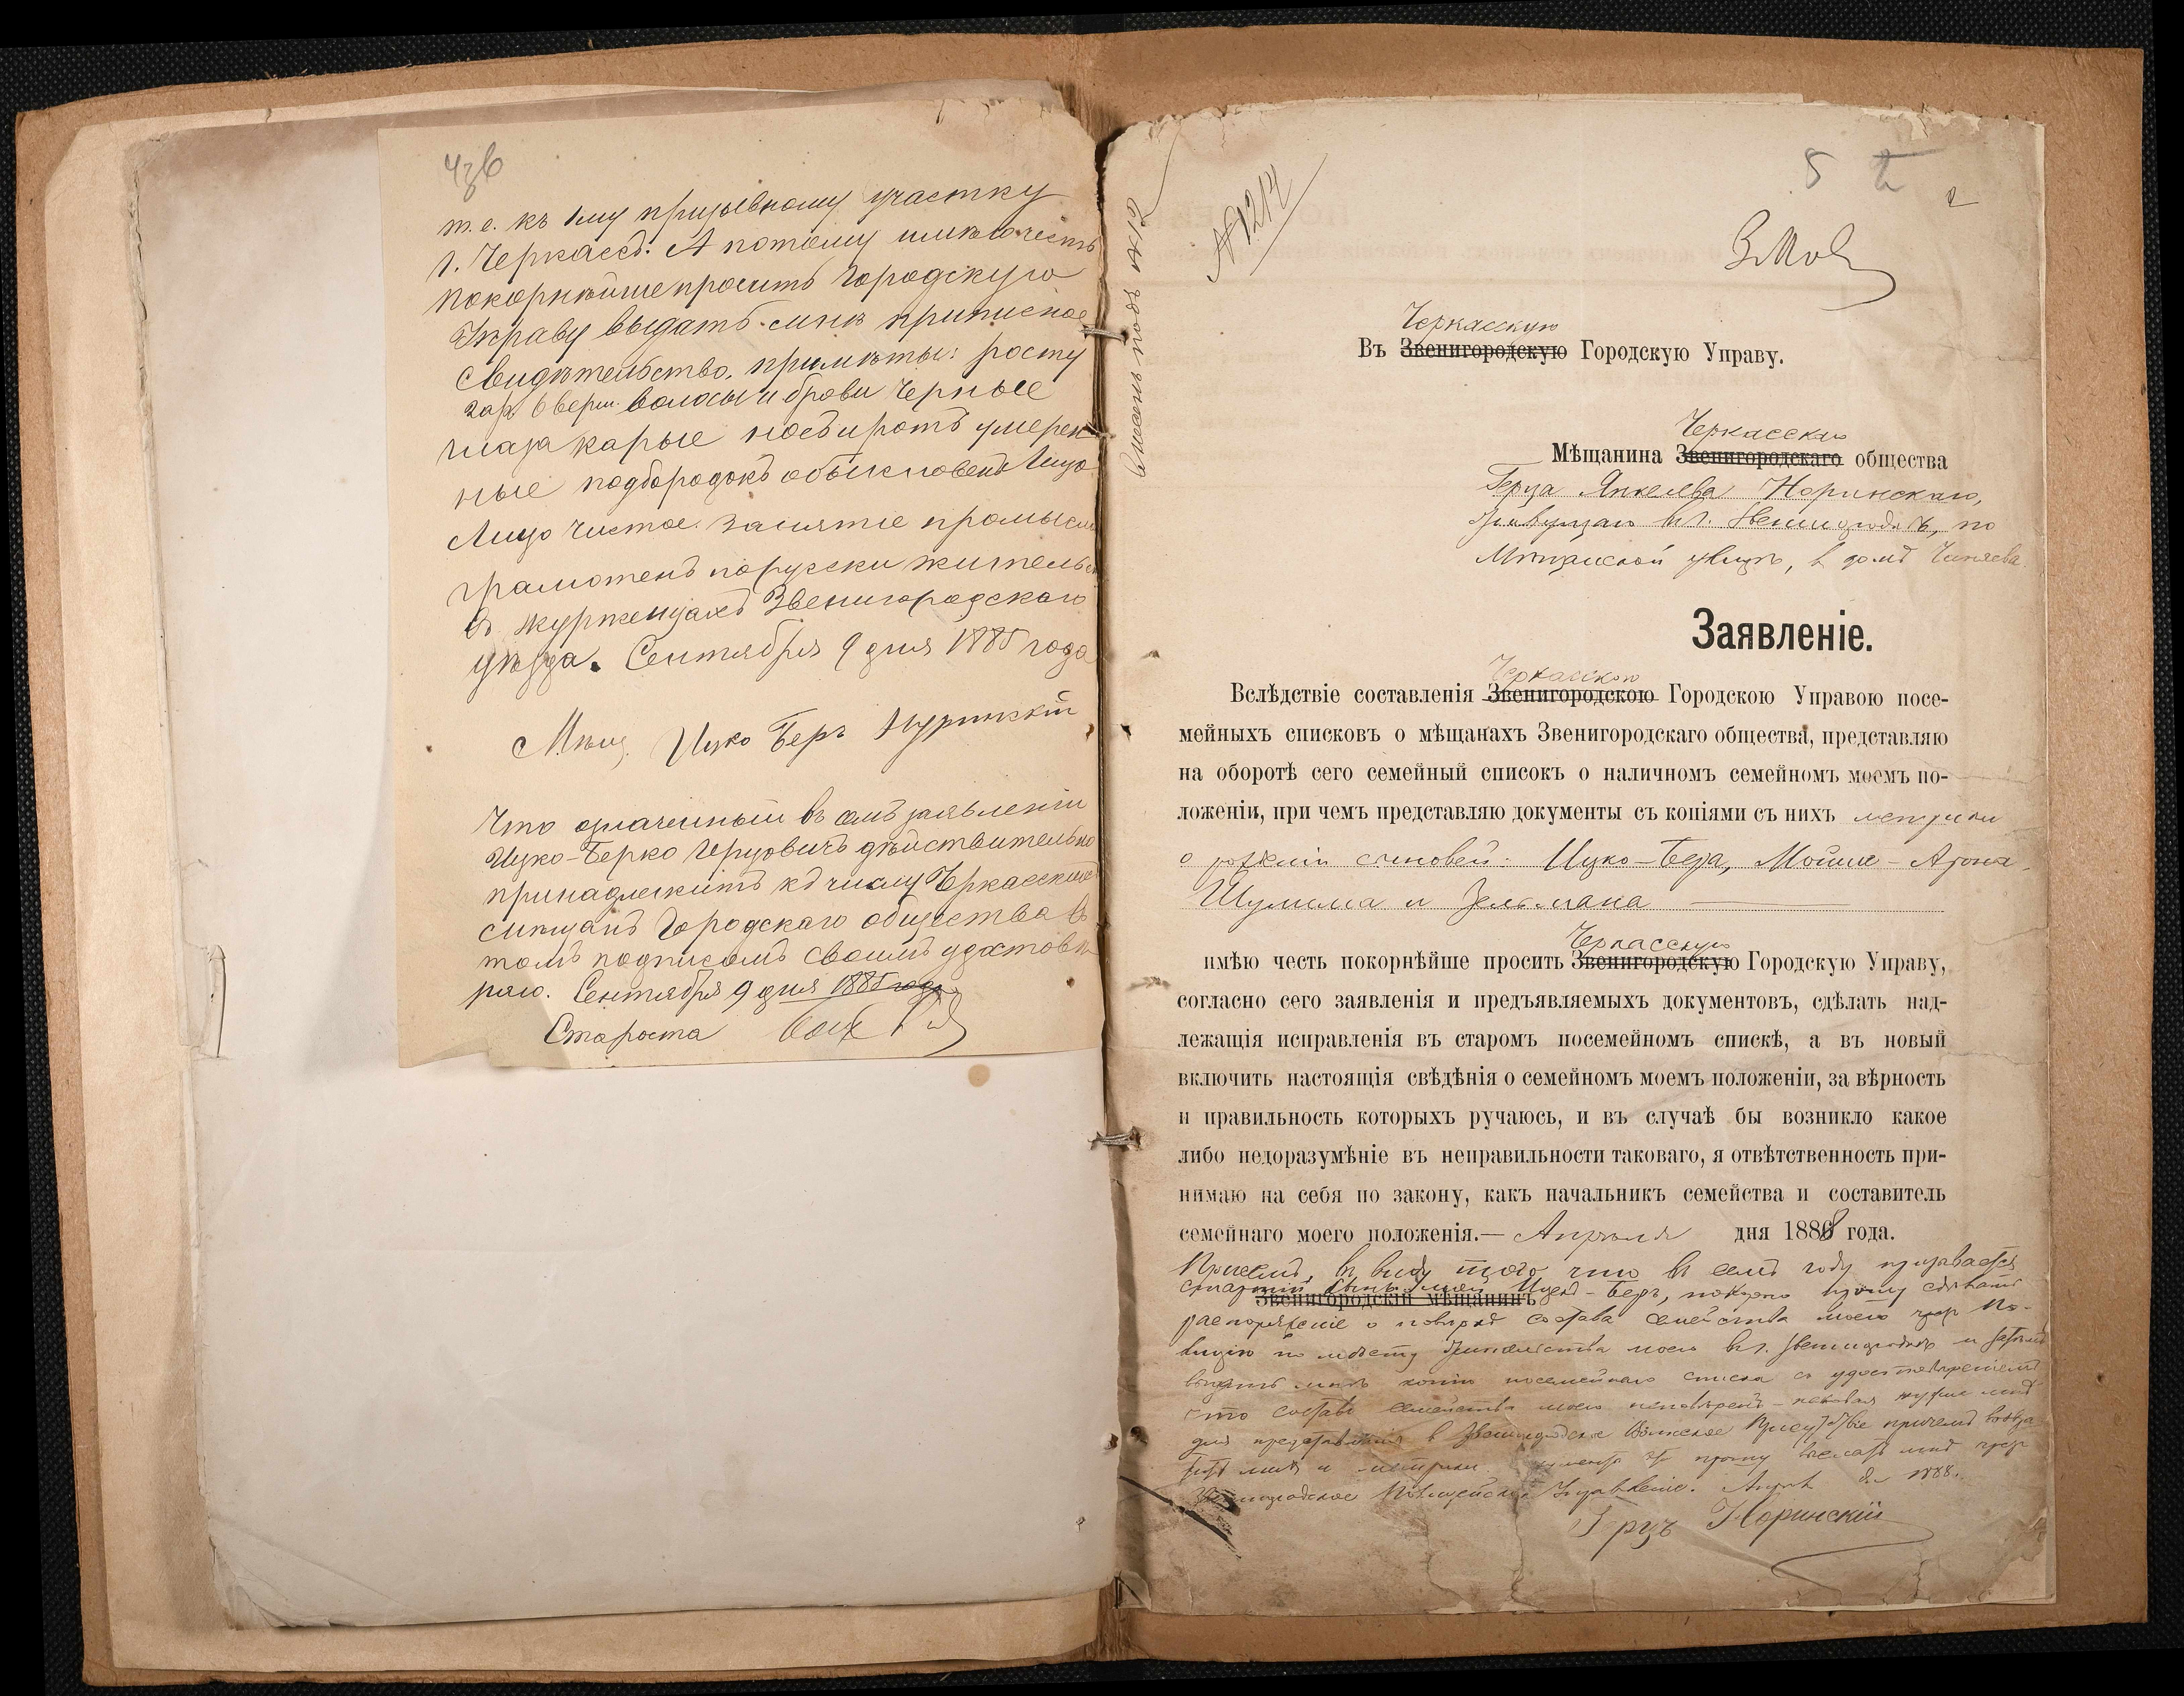 т.е. къ 1му призывному участку
г. Черкассъ: А потому имѣю честь
покорнѣйше просить Городскую
Управу выдать мнѣ приписное
свидѣтельство, примѣты: росту
2 ар 6 верш. волосы и брови черные
глаза карые носъ и ротъ умерен
ные подбородокъ обыкновенъ
Лицо чистое занятіе промысл
грамотенъ порусски жительс
въ Журженцахъ Звенигородскаго
уѣзда. Сентября 9 дня 1885 года
Мѣщ. Ицко Беръ Нуринскій
Что означенный въ семъ заявленіи
Ицко-Берко Герцовичъ дѣйствительно
принадлежитъ къ числу Черкасскихъ
мѣщанъ Городскаго общества въ
томъ подписомъ своимъ удостовѣ
ряю. Сентября 9 дня 1885 года
Староста
№ 1212
5 2
2
Черкасскую
Въ Звенигородскую Городскую Управу.
Черкасскаго
Мѣщанина Звенигородскаго общества
Герца Янкелева Норинскаго,
Живущаго въ г. Звенигородкѣ, по
Мѣщанской улицѣ, въ домѣ
Заявленіе.
Черкасскою
Вслѣдствіе составленія Звенигородскою Городскою Управою посе-
мейныхъ списковъ о мѣщанахъ Звенигородскаго общества, представляю
на оборотѣ сего семейный списокъ о наличномъ семейномъ моемъ по-
ложеніи, при чемъ представляю документы съ копіями съ нихъ метрики
о рожденіи сыновей: Ицко-Бера, Мойше-Арона
Шулима и Зельмана
Черкасскую
имѣю честь покорнѣйше просить Звенигородскую Городскую Управу,
согласно сего заявленія и предъявляемыхъ документовъ, сдѣлать над-
лежащія исправленія въ старомъ посемейномъ спискѣ, а въ новый
включить настоящія свѣдѣнія о семейномъ моемъ положеніи, за вѣрность
и правильность которыхъ ручаюсь, и въ случаѣ бы возникло какое
либо недоразумѣніе въ неправильности таковаго, я отвѣтственность при-
нимаю на себя по закону, какъ начальникъ семейства и составитель
семейнаго моего положенія.— Апрѣля дня 1888 года.
Причемъ, въ виду того что въ семъ году призывается
старшій сынъ мой Ицко-Беръ, покорно прошу сдѣлать
Звенигородскій мѣщанинъ
распоряженіе о повѣркѣ состава семейства моего чрез По-
лицію по мѣсту жительства моего въ г. Звенигородкѣ и затѣмъ
выдать мнѣ копію посемейнаго списка съ удостовѣреніемъ
что составъ семейства моего
для представленія в Звенигородское Воинское Присутствіе причемъ
мнѣ и метрики. прошу выслать мнѣ чрез
Звенигородское Полицейское Управленіе. 1888.
Герцъ Норинскій